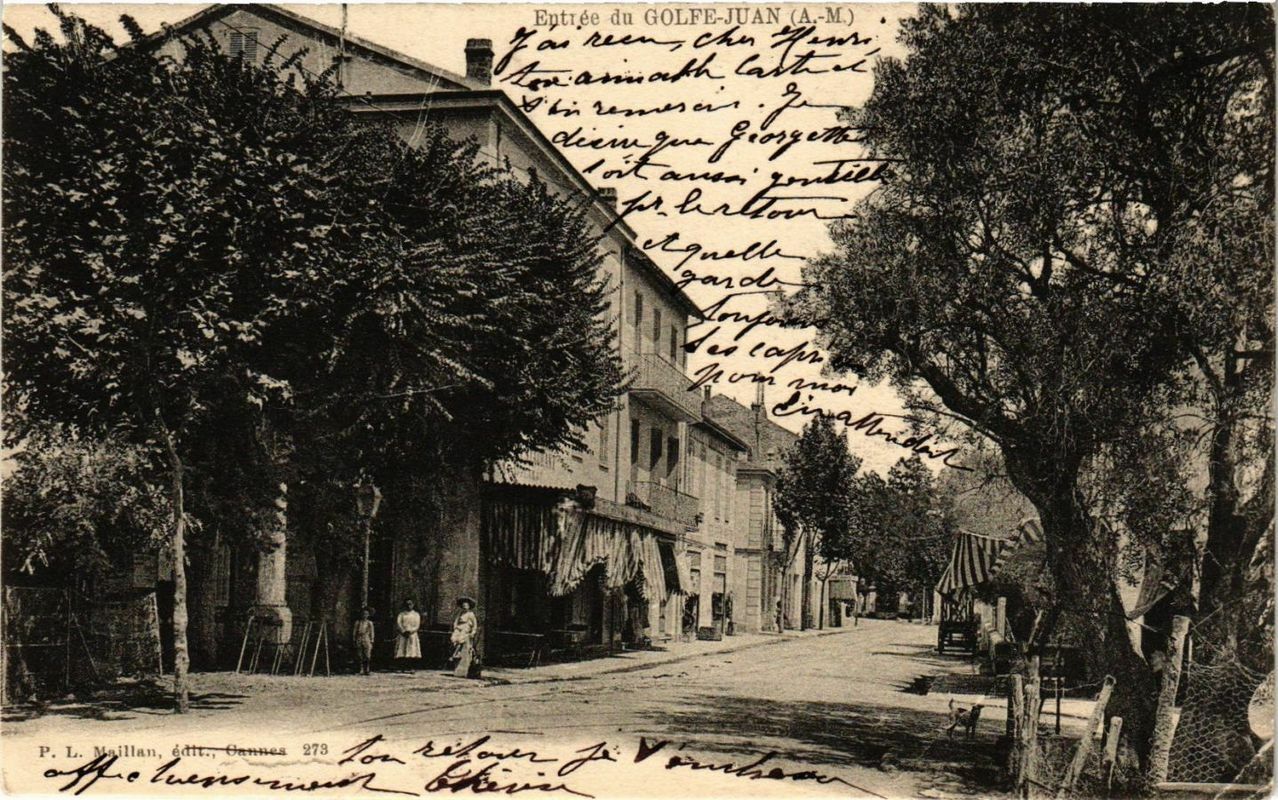 Entrée du GOLFE-JUAN (A.-M.)
J'ai reçu, cher Henri,
ton aimable carte et
t'en remercie. Je
désire que Georgette
soit aussi gentille
pr. le retour
et quelle
garde
toujours
ses capr
pour moi
En attendant
P. L. Maillan, édit., Cannes 273
ton retour je t'embrasse
affectueusement